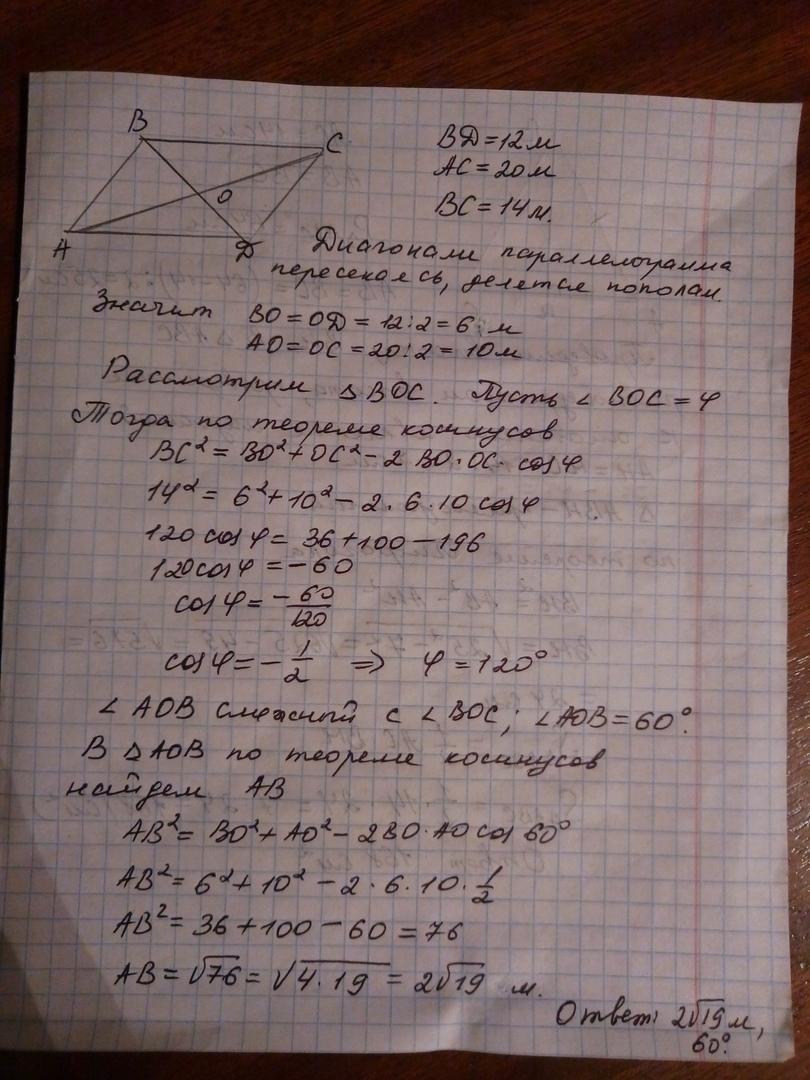 B
C
O
A
D
BD = 12 м
AC = 20 м
BC = 14 м.
Диагонали параллелограмма
пересекаясь, делятся пополам.
Значит BO = OD = 12 : 2 = 6 м
AO = OC = 20 : 2 = 10 м
Рассмотрим △BOC. Пусть ∠BOC = φ
Тогда по теореме косинусов
BC² = BO² + OC² - 2 BO · OC · cos φ
14² = 6² + 10² - 2 · 6 · 10 cos φ
120 cos φ = 36 + 100 - 196
120 cos φ = -60
cos φ = -60/120
cos φ = -1/2 => φ = 120°
∠AOB смежный с ∠BOC; ∠AOB = 60°.
В △AOB по теореме косинусов
найдем AB
AB² = BO² + AO² - 2BO · AO cos 60°
AB² = 6² + 10² - 2 · 6 · 10 · 1/2
AB² = 36 + 100 - 60 = 76
AB = √76 = √4 · 19 = 2√19 м.
Ответ: 2√19 м,
60°.